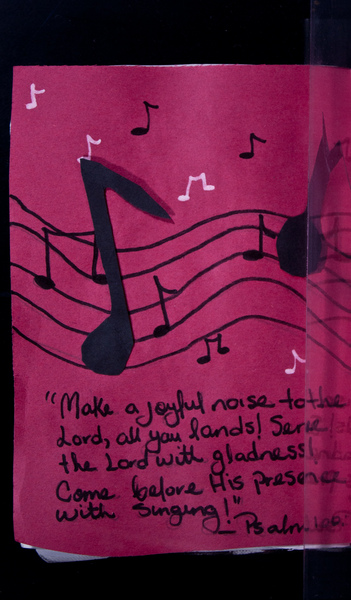 "Make a joyful noise to the
Lord, all you lands! Serve
the Lord with gladness!
Come before His presence
with singing!"
- Psalm